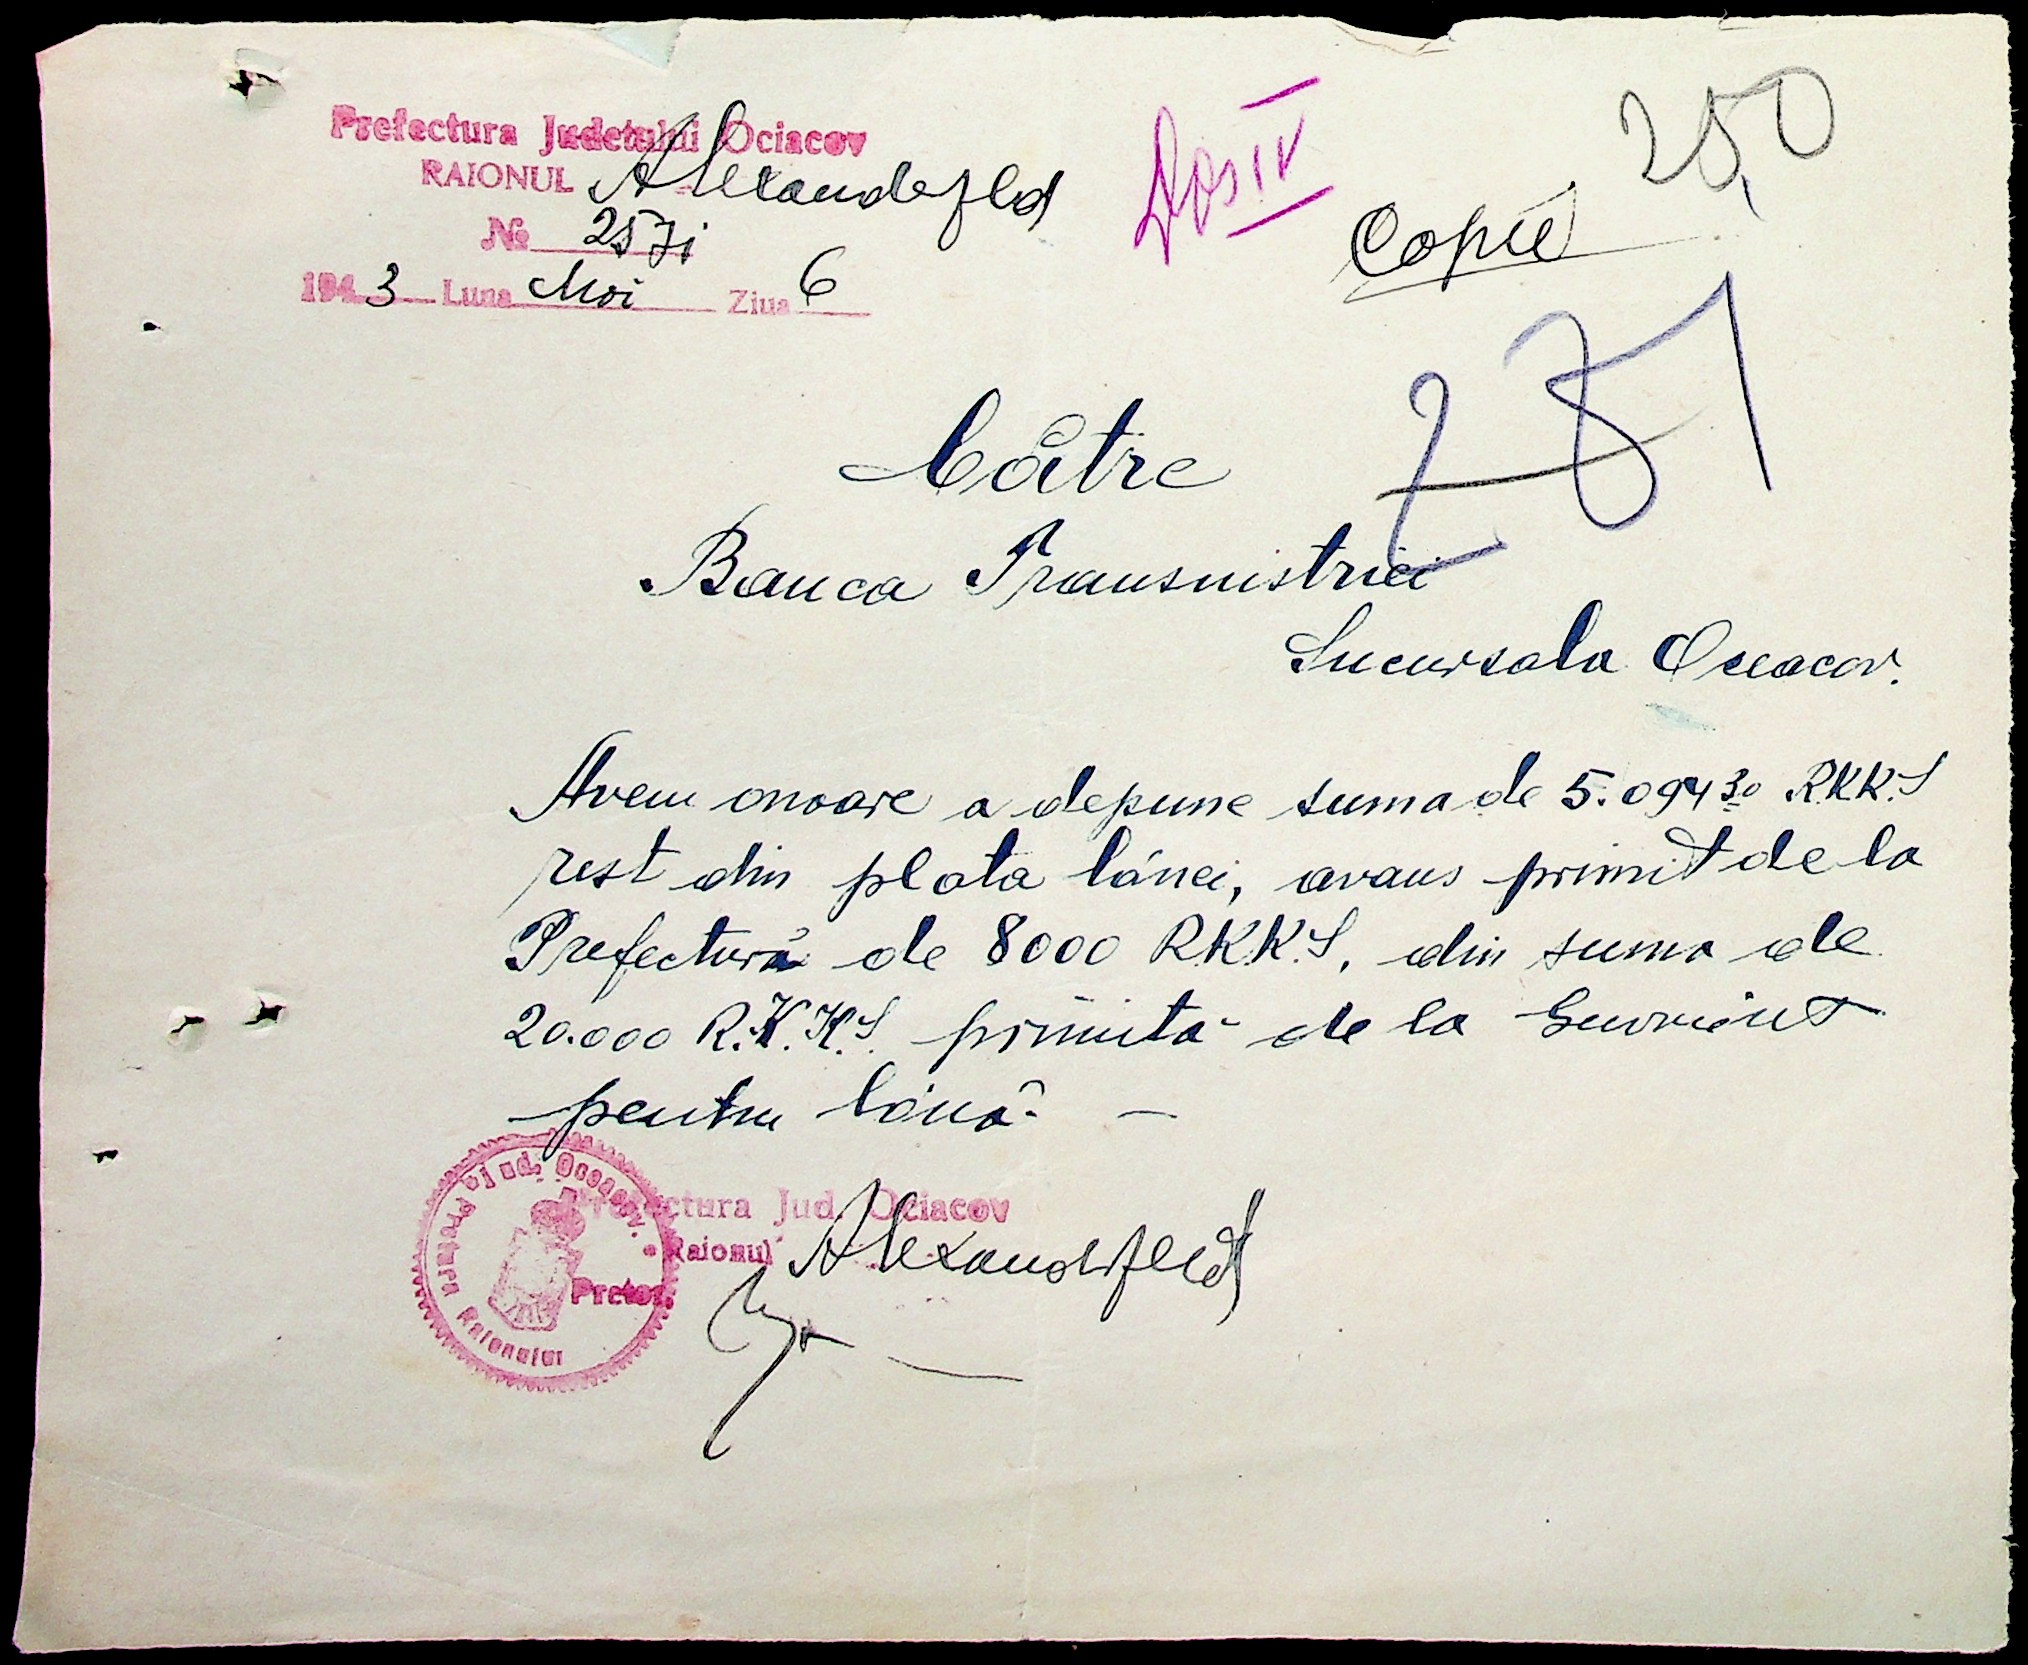 Prefectura Judetului Ociacov
RAIONUL Alexandefld
No 2571
1943 Luna Mai Ziua 6
Dos IV
250
Copie
251
Către
Banca Transnistriei
Sucursala Oceacov.
Avem onoare a depune suma de 5.094 30 R.K.K.S
rest din plata lânei, avans primit de la
Prefectură de 8000 R.K.K.S, din suma de
20.000 R.K.K.S. primită de la Guvrint
pentru lână. —
Prefectura Jud. Ociacov
Raionul Alexandrfeld
Pretor,
Pretura Raionului jud. Oceacov.